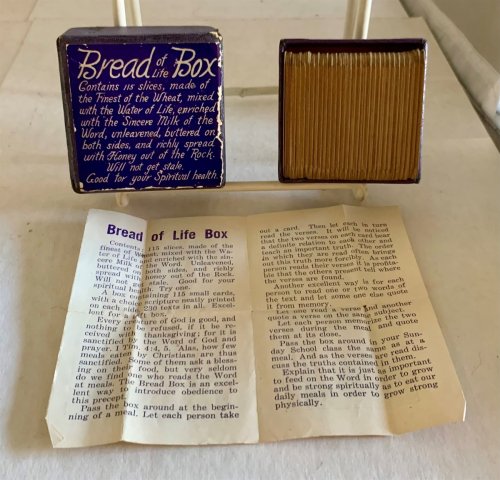 Bread of Life Box
Contains 115 slices, made of
the Finest of the Wheat, mixed
with the Water of Life, enriched
with the Sincere Milk of the
Word, unleavened, buttered on
both sides, and richly spread
with Honey out of the Rock.
Will not get stale
Good for your Spiritual health.
Bread of Life Box
Contents: 115 slices, made of the
finest of Wheat; mixed with the Wa-
ter of Life; enriched with the sin-
cere Milk of the Word. Unleavened,
buttered on both sides, and richly
spread with Honey out of the Rock.
Will not get stale. Good for your
spiritual health. Try one.
A box containing 115 small cards,
with a choice scripture neatly printed
on each side, 230 texts in all. Excel-
lent for a gift box.
For every creature of God is good, and
nothing to be refused, if it be re-
ceived with thanksgiving; for it is
sanctified by the Word of God and
prayer. I Tim. 4:4, 5. Alas, how few
meals eaten by Christians are thus
sanctified. Some of them ask a bless-
ing on their food, but very seldom
do we find one who reads the Word
at meals. The Bread Box is an excel-
lent way to introduce obedience to
this precept.
Pass the box around at the begin-
ning of a meal. Let each person take
out a card. Then let each in turn
read the verses. It will be noticed
that the two verses on each card bear
a definite relation to each other and
teach an important truth. The order
in which they are read often brings
out this truth more forcibly. As each
person reads their verse it is profita-
ble that the others present tell where
the verses are found.
Another excellent way is for each
person to read one or two words of
the text and let some one else quote
it from memory.
Let one read a verse and another
quote a verse on the same subject.
Let each person memorize the two
verses during the meal and quote
them at its close.
Pass the box around in your Sun-
day School class the same as at a
meal. And as the verses are read dis-
cuss the truths contained in them.
Explain that it is just as important
to feed on the Word in order to grow
and be strong spiritually as to eat our
daily meals in order to grow strong
physically.